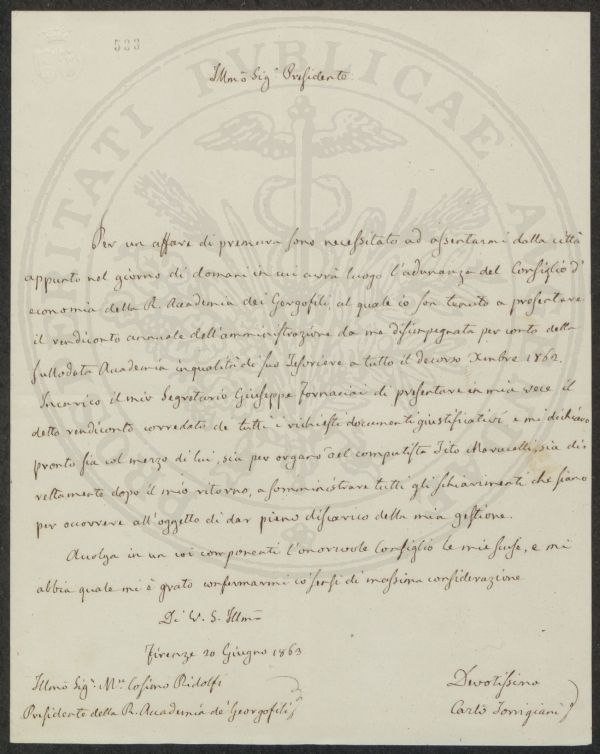 533
Illmo Sigr. Presidente
Per un affare di premura sono necessitato ad assentarmi dalla città
appunto nel giorno di domani in cui avrà luogo l'adunanza del Consiglio d'
economia della R. Accademia dei Georgofili, al quale io son tenuto a presentare
il rendiconto annuale dell'amministrazione da me disimpegnata per conto della
sullodata Accademia in qualità di suo Tesoriere a tutto il decorso Xmbre 1862.
Incarico il mio Segretario Giuseppe Fornaciai di presentare in mia vece il
detto rendiconto corredato de tutti i richiesti documenti giustificativi e mi dichiaro
pronto sia col mezzo di lui, sia per organo del computista Tito Marucelli, sia di=
rettamente dopo il mio ritorno, a somministrare tutti gli schiarimenti che siano
per occorrere all'oggetto di dar pieno discarico della mia gestione.
Accolga in un coi componenti l'onorevole Consiglio le mie scuse, e mi
abbia quale mi è grato confermarmi co' sensi di massima considerazione
Di V. S. Illma
Firenze 20 Giugno 1863
Illmo Sigr. Mse Cosimo Ridolfi
Presidente della R. Accademia de' Georgofili
Devotissimo
Carlo Torrigiani